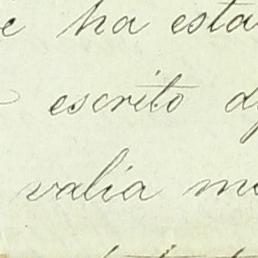 e ha esta
escrito d
valia m